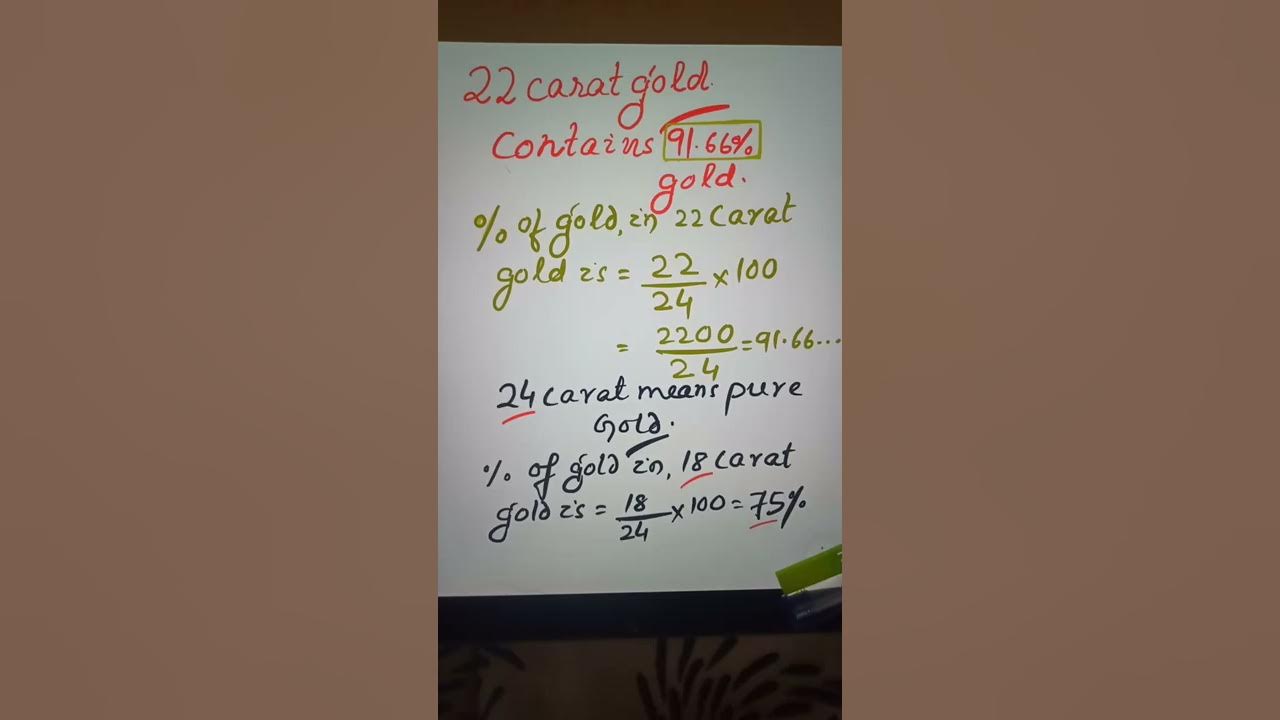 22 carat gold.
Contains 91.66%
gold.
% of gold, in 22 Carat
gold is = 22/24 × 100
= 2200/24 = 91.66...
24 carat means pure
Gold.
% of gold in, 18 carat
gold is = 18/24 × 100 = 75%